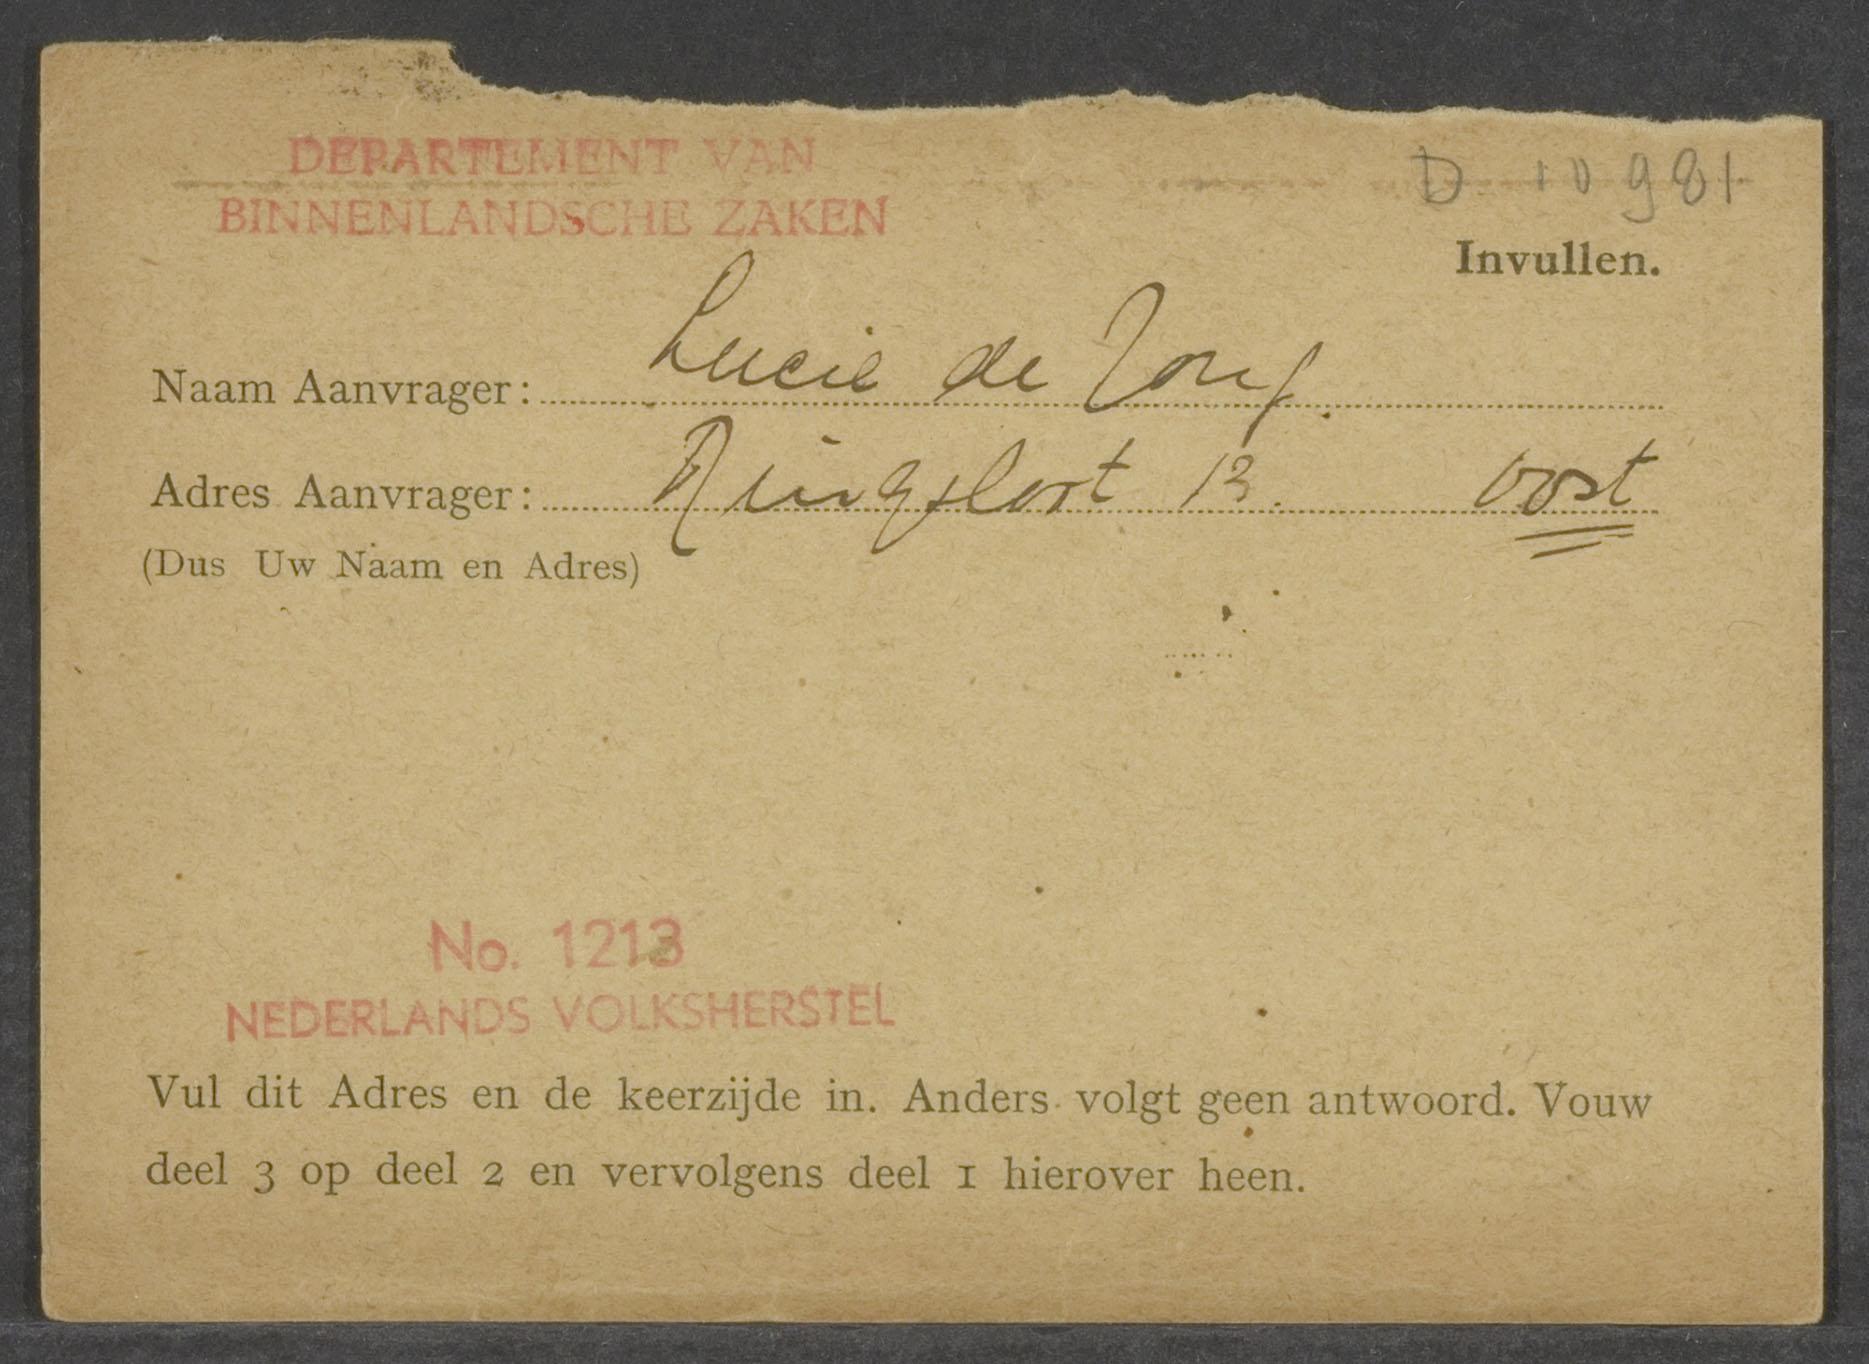 DEPARTEMENT VAN
BINNENLANDSCHE ZAKEN
D 10981
Invullen.
Naam Aanvrager: Lucie de Jong.
Adres Aanvrager: Ringsloot 13. Oost
(Dus Uw Naam en Adres)
No. 1213
NEDERLANDS VOLKSHERSTEL
Vul dit Adres en de keerzijde in. Anders volgt geen antwoord. Vouw
deel 3 op deel 2 en vervolgens deel 1 hierover heen.